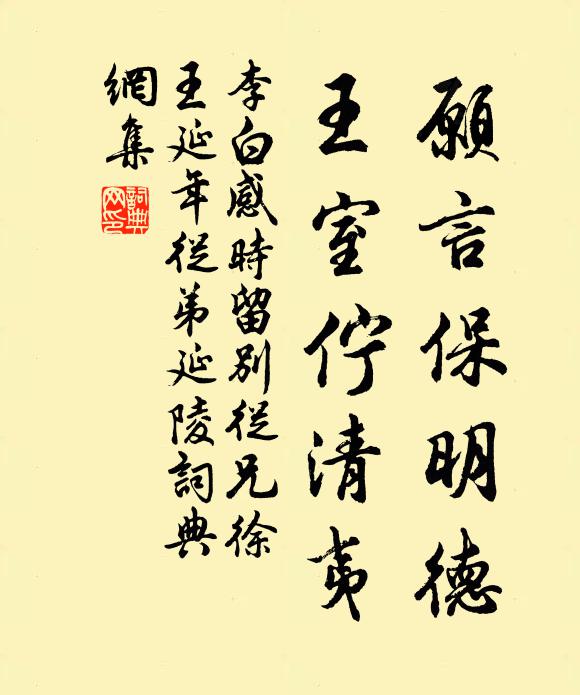 願言保明德
王室佇清夷
李白感時留別從兄徐
王延年從弟延陵詞典
網集
詞典
网印